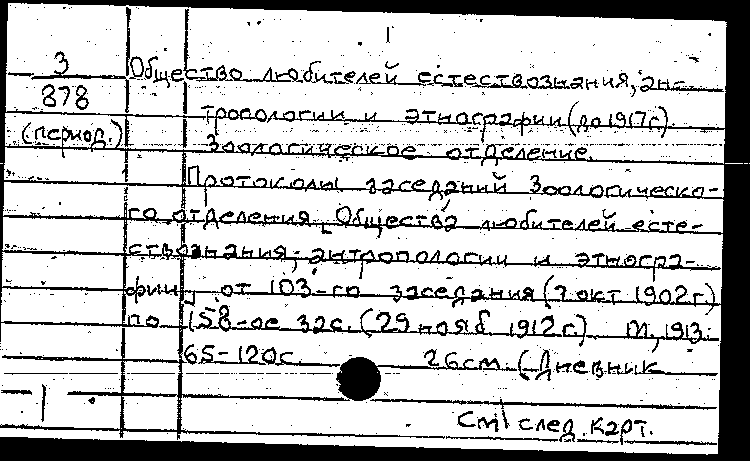 З
878
(период.)
Общество любителей естествознания, ан-
тропологии и этнографии (до 1917 г.)
Зоологическое отделение.
Протоколы заседаний Зоологическо-
го отделения Общества любителей есте-
ствознания, антропологии и этногра-
фии, от 103-го заседания (7 окт 1902 г.)
по 158-ое зас. (29 нояб 1912 г.) М, 1913.
65-120с. 26см. (Дневник
См след. карт.